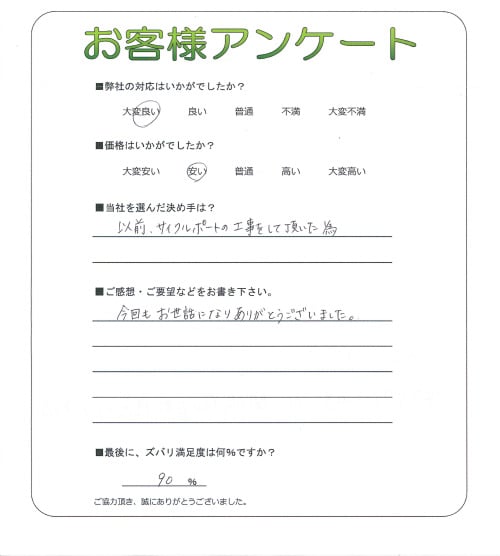 お客様アンケート
■弊社の対応はいかがでしたか？
大変良い 良い 普通 不満 大変不満
■価格はいかがでしたか？
大変安い 安い 普通 高い 大変高い
■当社を選んだ決め手は？
以前、サイクルポートの工事をして頂いた為
■ご感想・ご要望などをお書き下さい。
今回もお世話になりありがとうございました。
■最後に、ズバリ満足度は何％ですか？
90 ％
ご協力頂き、誠にありがとうございました。